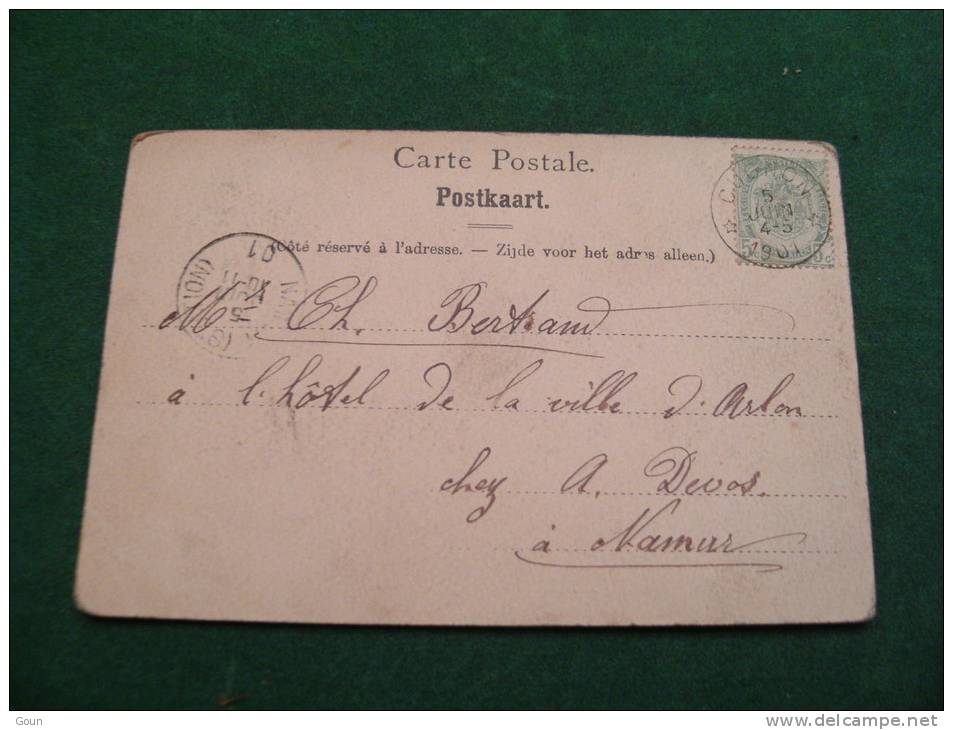 Carte Postale.
Postkaart.
(Côté réservé à l'adresse. — Zijde voor het adres alleen.)
5
JUIN
4-5
1901
5c 5c
01
5
Mr Ch. Bertrand
à l'hôtel de la ville d'Arlon
chez A. Devos.
à Namur
Goun
www.delcampe.net